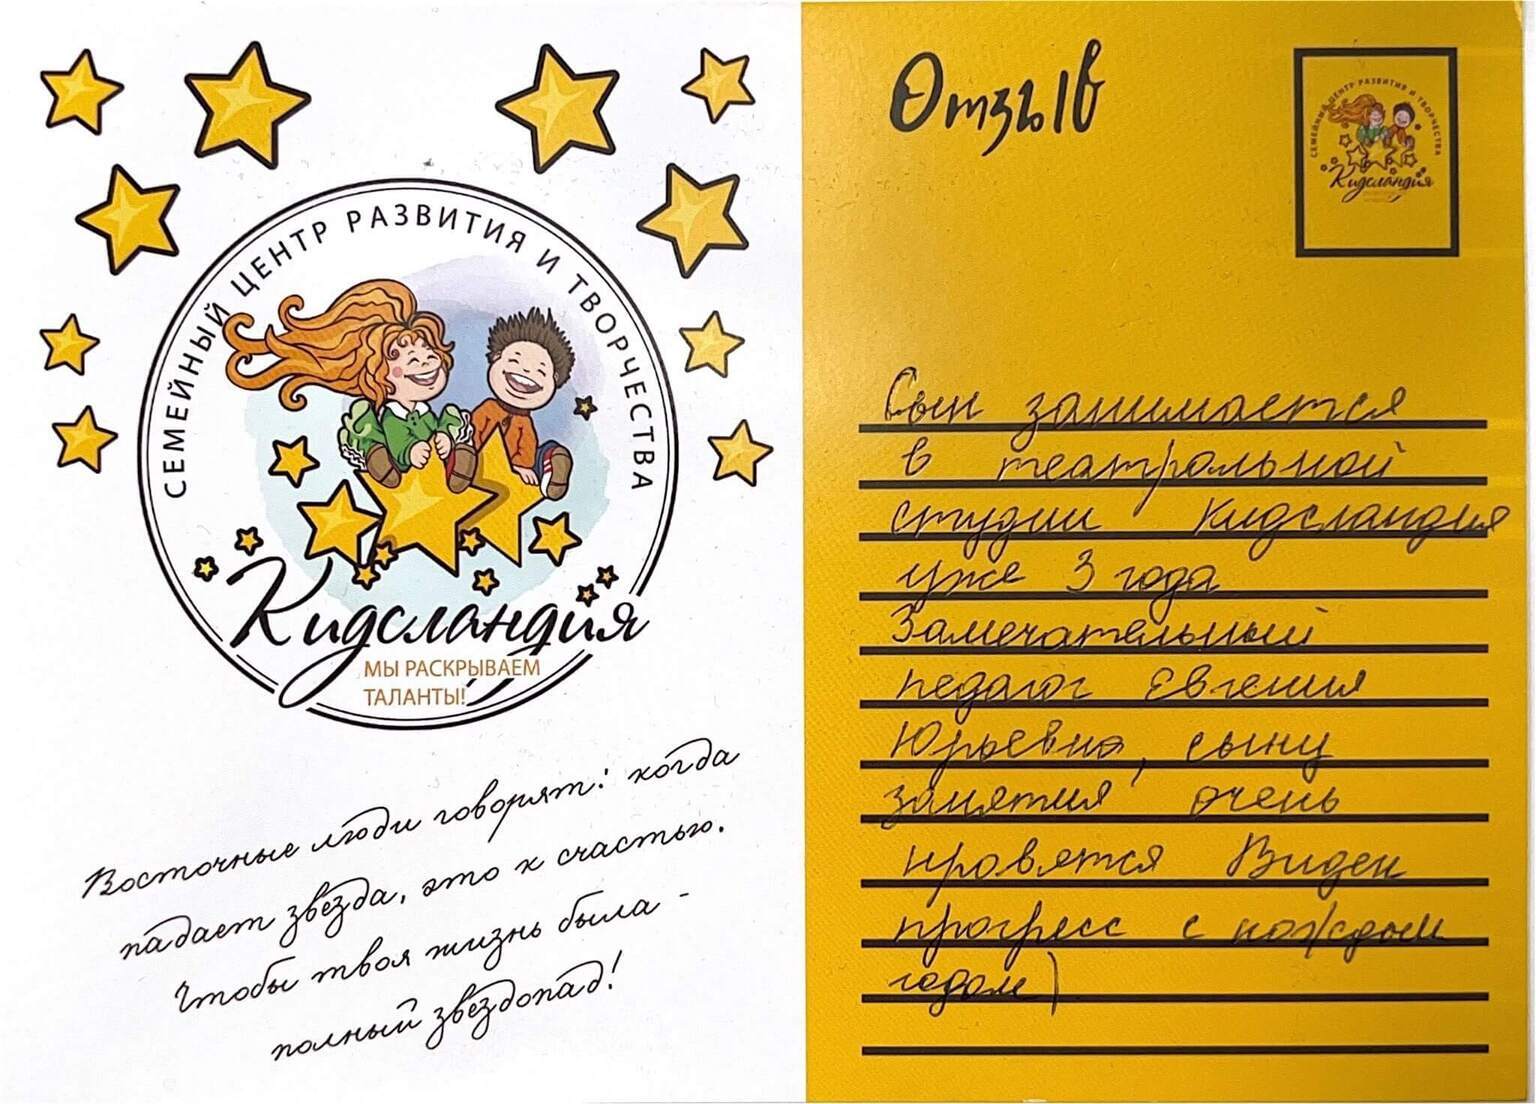 СЕМЕЙНЫЙ ЦЕНТР РАЗВИТИЯ И ТВОРЧЕСТВА
Кидсландия
МЫ РАСКРЫВАЕМ
ТАЛАНТЫ!
Восточные люди говорят: когда
падает звезда, это к счастью.
Чтобы твоя жизнь была -
полный звездопад!
Отзыв
СЕМЕЙНЫЙ ЦЕНТР РАЗВИТИЯ И ТВОРЧЕСТВА
Кидсландия
Сын занимается
в театральной
студии Кидсландия
уже 3 года
Замечательный
педагог Евгения
Юрьевна, сыну
занятия очень
нравятся Виден
прогресс с каждым
годом)